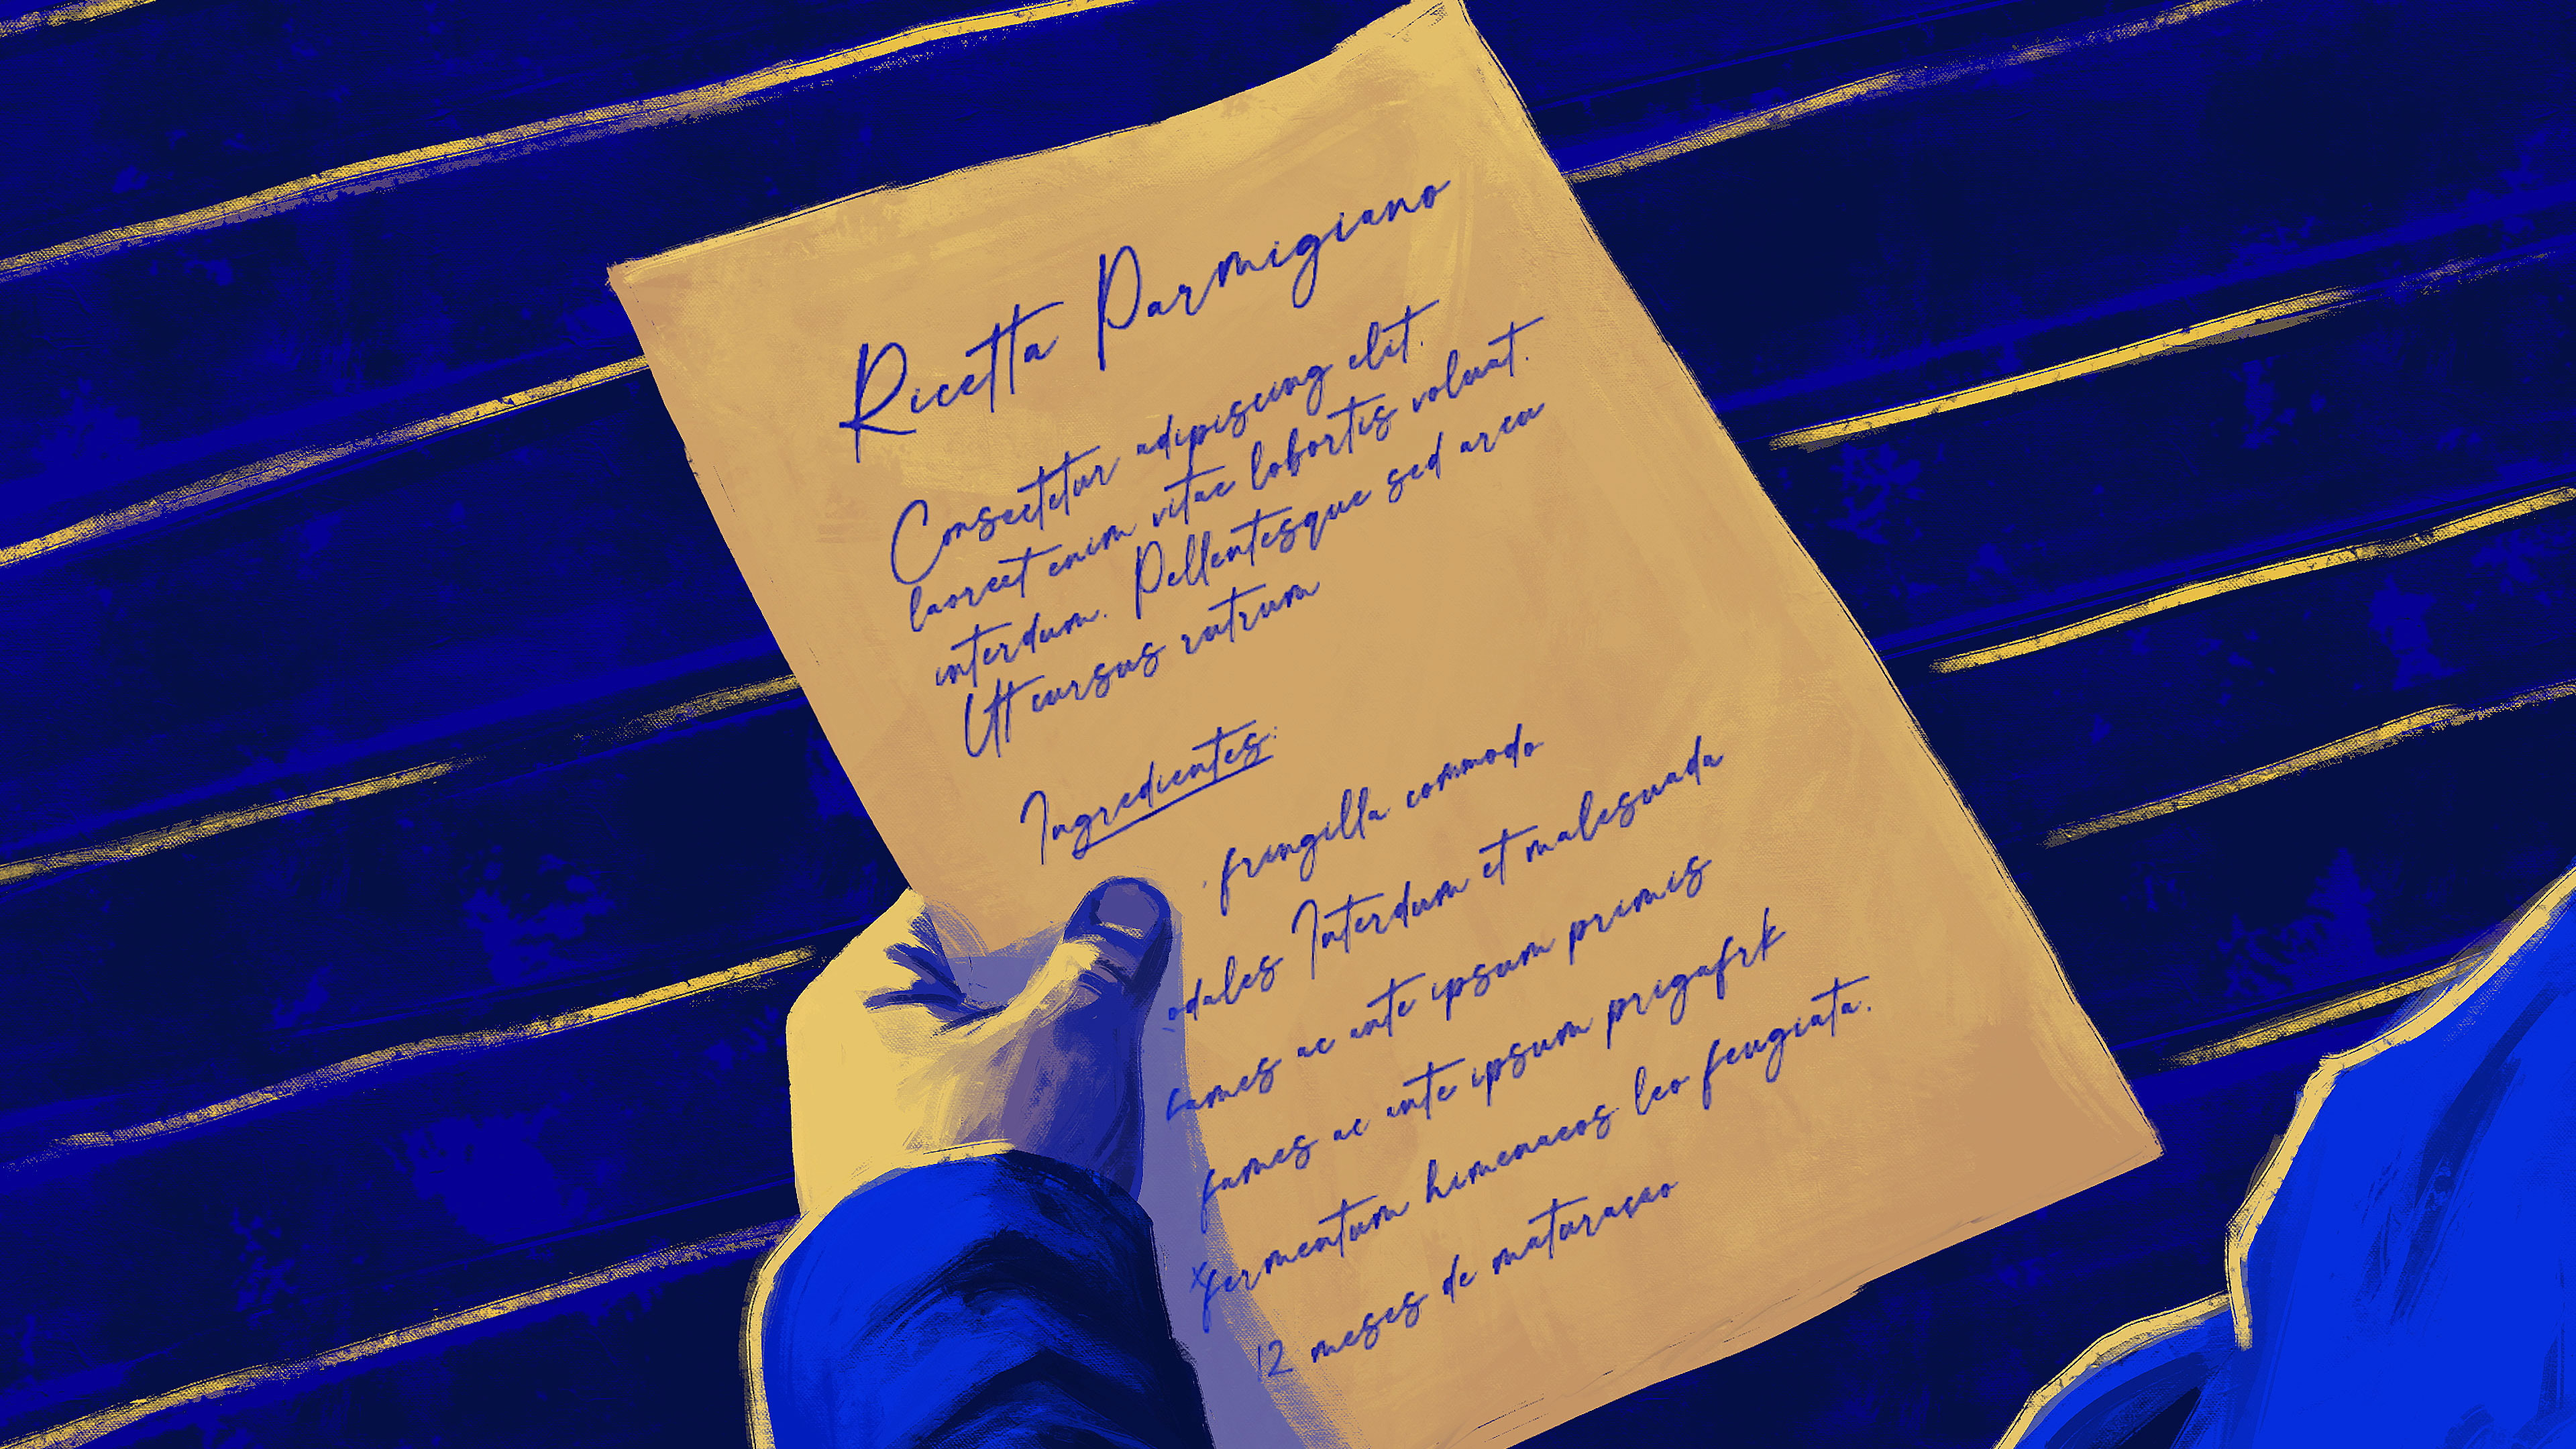 Ricetta Parmigiano
Consectetur adipiscing elit.
laoreet enim vitae lobortis voluat.
interdum. Pellentesque sed arcu
Ut cursus rutrum
Ingredientes:
fringilla commodo
odales Interdum et malesuada
fames ac ante ipsum primis
fames ac ante ipsum prigafrk
fermentum himenaeos leo feugiata.
12 meses de maturaçao